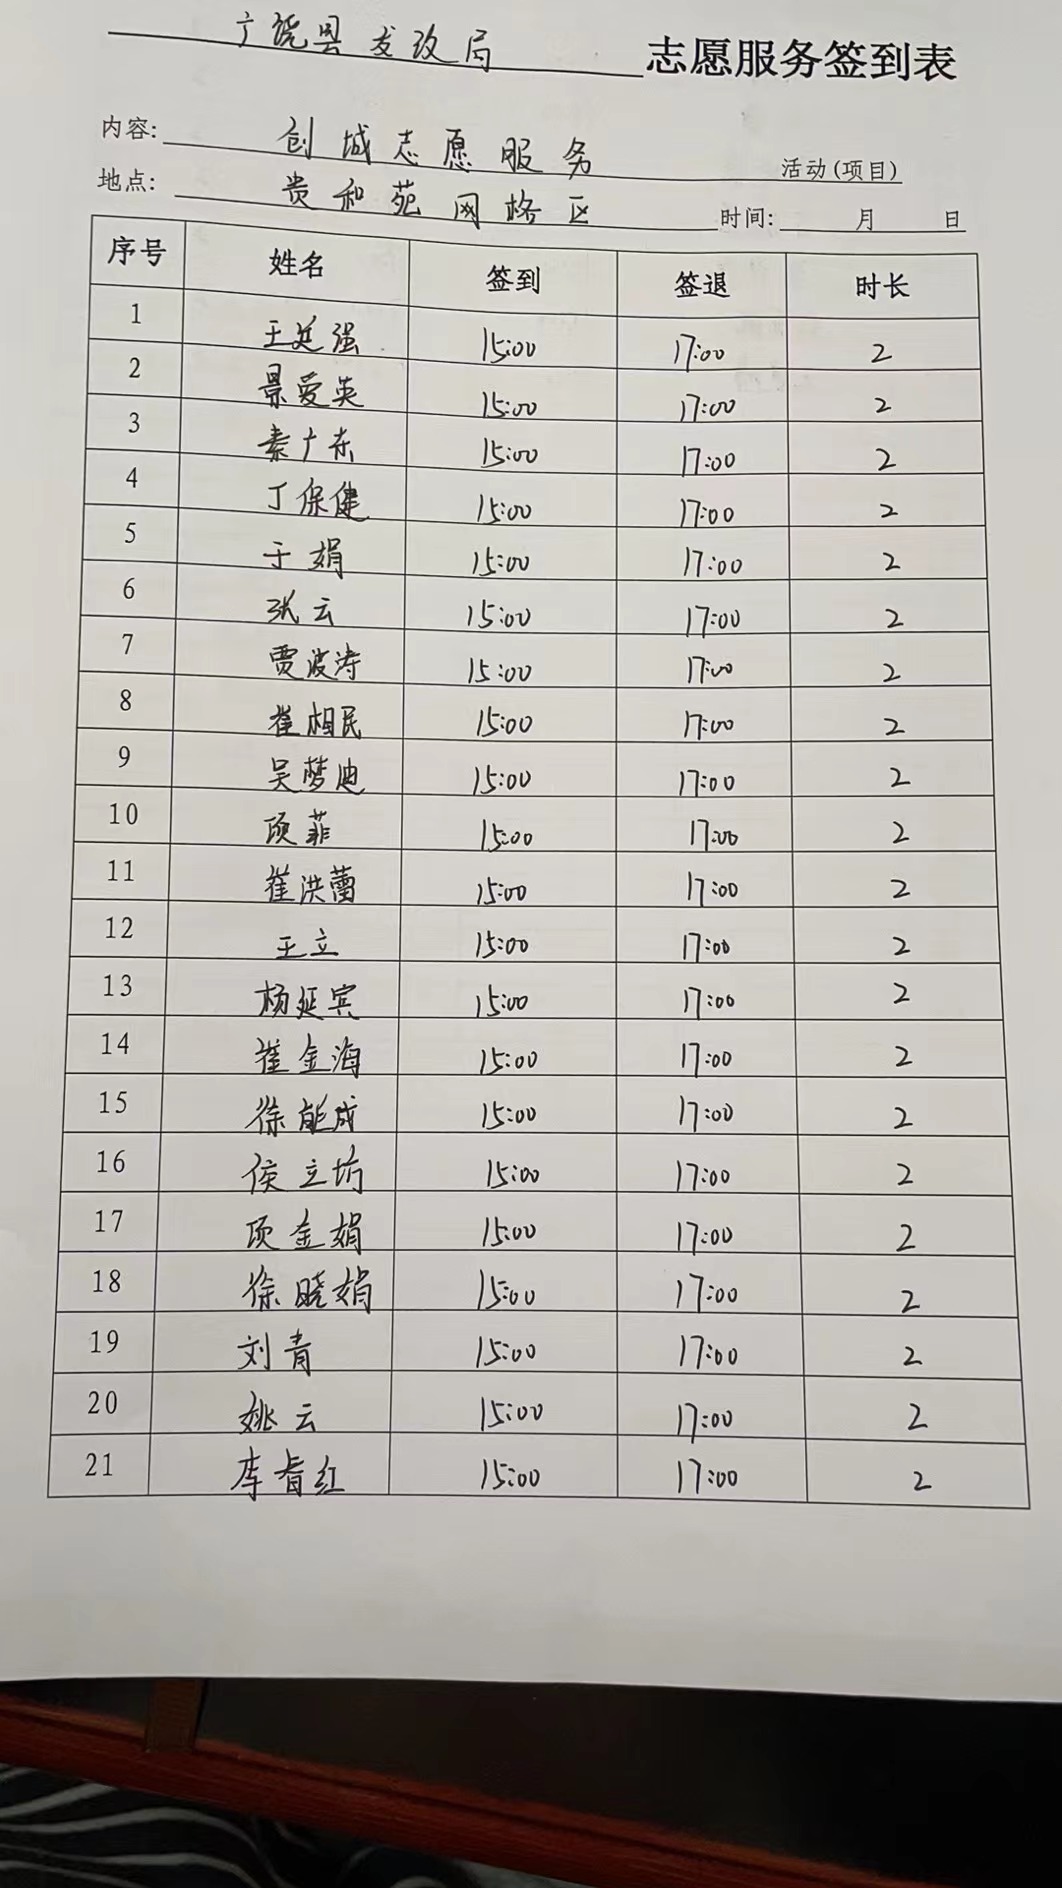 广饶县发改局 志愿服务签到表
内容: 创城志愿服务 活动(项目)
地点: 贵和苑网格区 时间: 月 日
序号 姓名 签到 签退 时长
1 王延强 15:00 17:00 2
2 景爱英 15:00 17:00 2
3 秦广东 15:00 17:00 2
4 丁保健 15:00 17:00 2
5 于娟 15:00 17:00 2
6 张云 15:00 17:00 2
7 贾波涛 15:00 17:00 2
8 崔相民 15:00 17:00 2
9 吴梦迪 15:00 17:00 2
10 项菲 15:00 17:00 2
11 崔洪蕾 15:00 17:00 2
12 王立 15:00 17:00 2
13 杨延宾 15:00 17:00 2
14 崔金海 15:00 17:00 2
15 徐能成 15:00 17:00 2
16 侯立坊 15:00 17:00 2
17 项金娟 15:00 17:00 2
18 徐晓娟 15:00 17:00 2
19 刘青 15:00 17:00 2
20 姚云 15:00 17:00 2
21 15:00 17:00 2